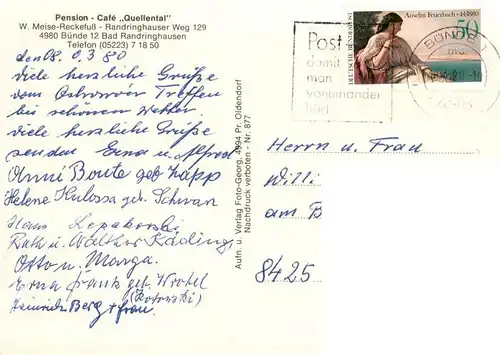 Pension - Café „Quellental"
W. Meise-Reckefuß - Randringhauser Weg 129
4980 Bünde 12 Bad Randringhausen
Telefon (05223) 7 18 50
den 08. 3 80
viele herzliche Grüße
vom Treffen
bei schönem Wetter
viele herzliche Grüße
senden Erna u. Alfred
Anni Boute geb. Zapp
Helene geb. Schwan
Hans
Ruth u. Walther Käding
Otto u. Marga.
Erna Frank geb.
Heinrich Berg + frau
Aufn. u. Verlag Foto-Georg, 4994 Pr. Oldendorf
Nachdruck verboten - Nr. 877
Post
damit
man
voneinander
hört
DEUTSCHE BUNDESPOST
Anselm Feuerbach · †4.1.1880
50
BÜNDE 1
Herrn u. Frau
Willi
am B
8425